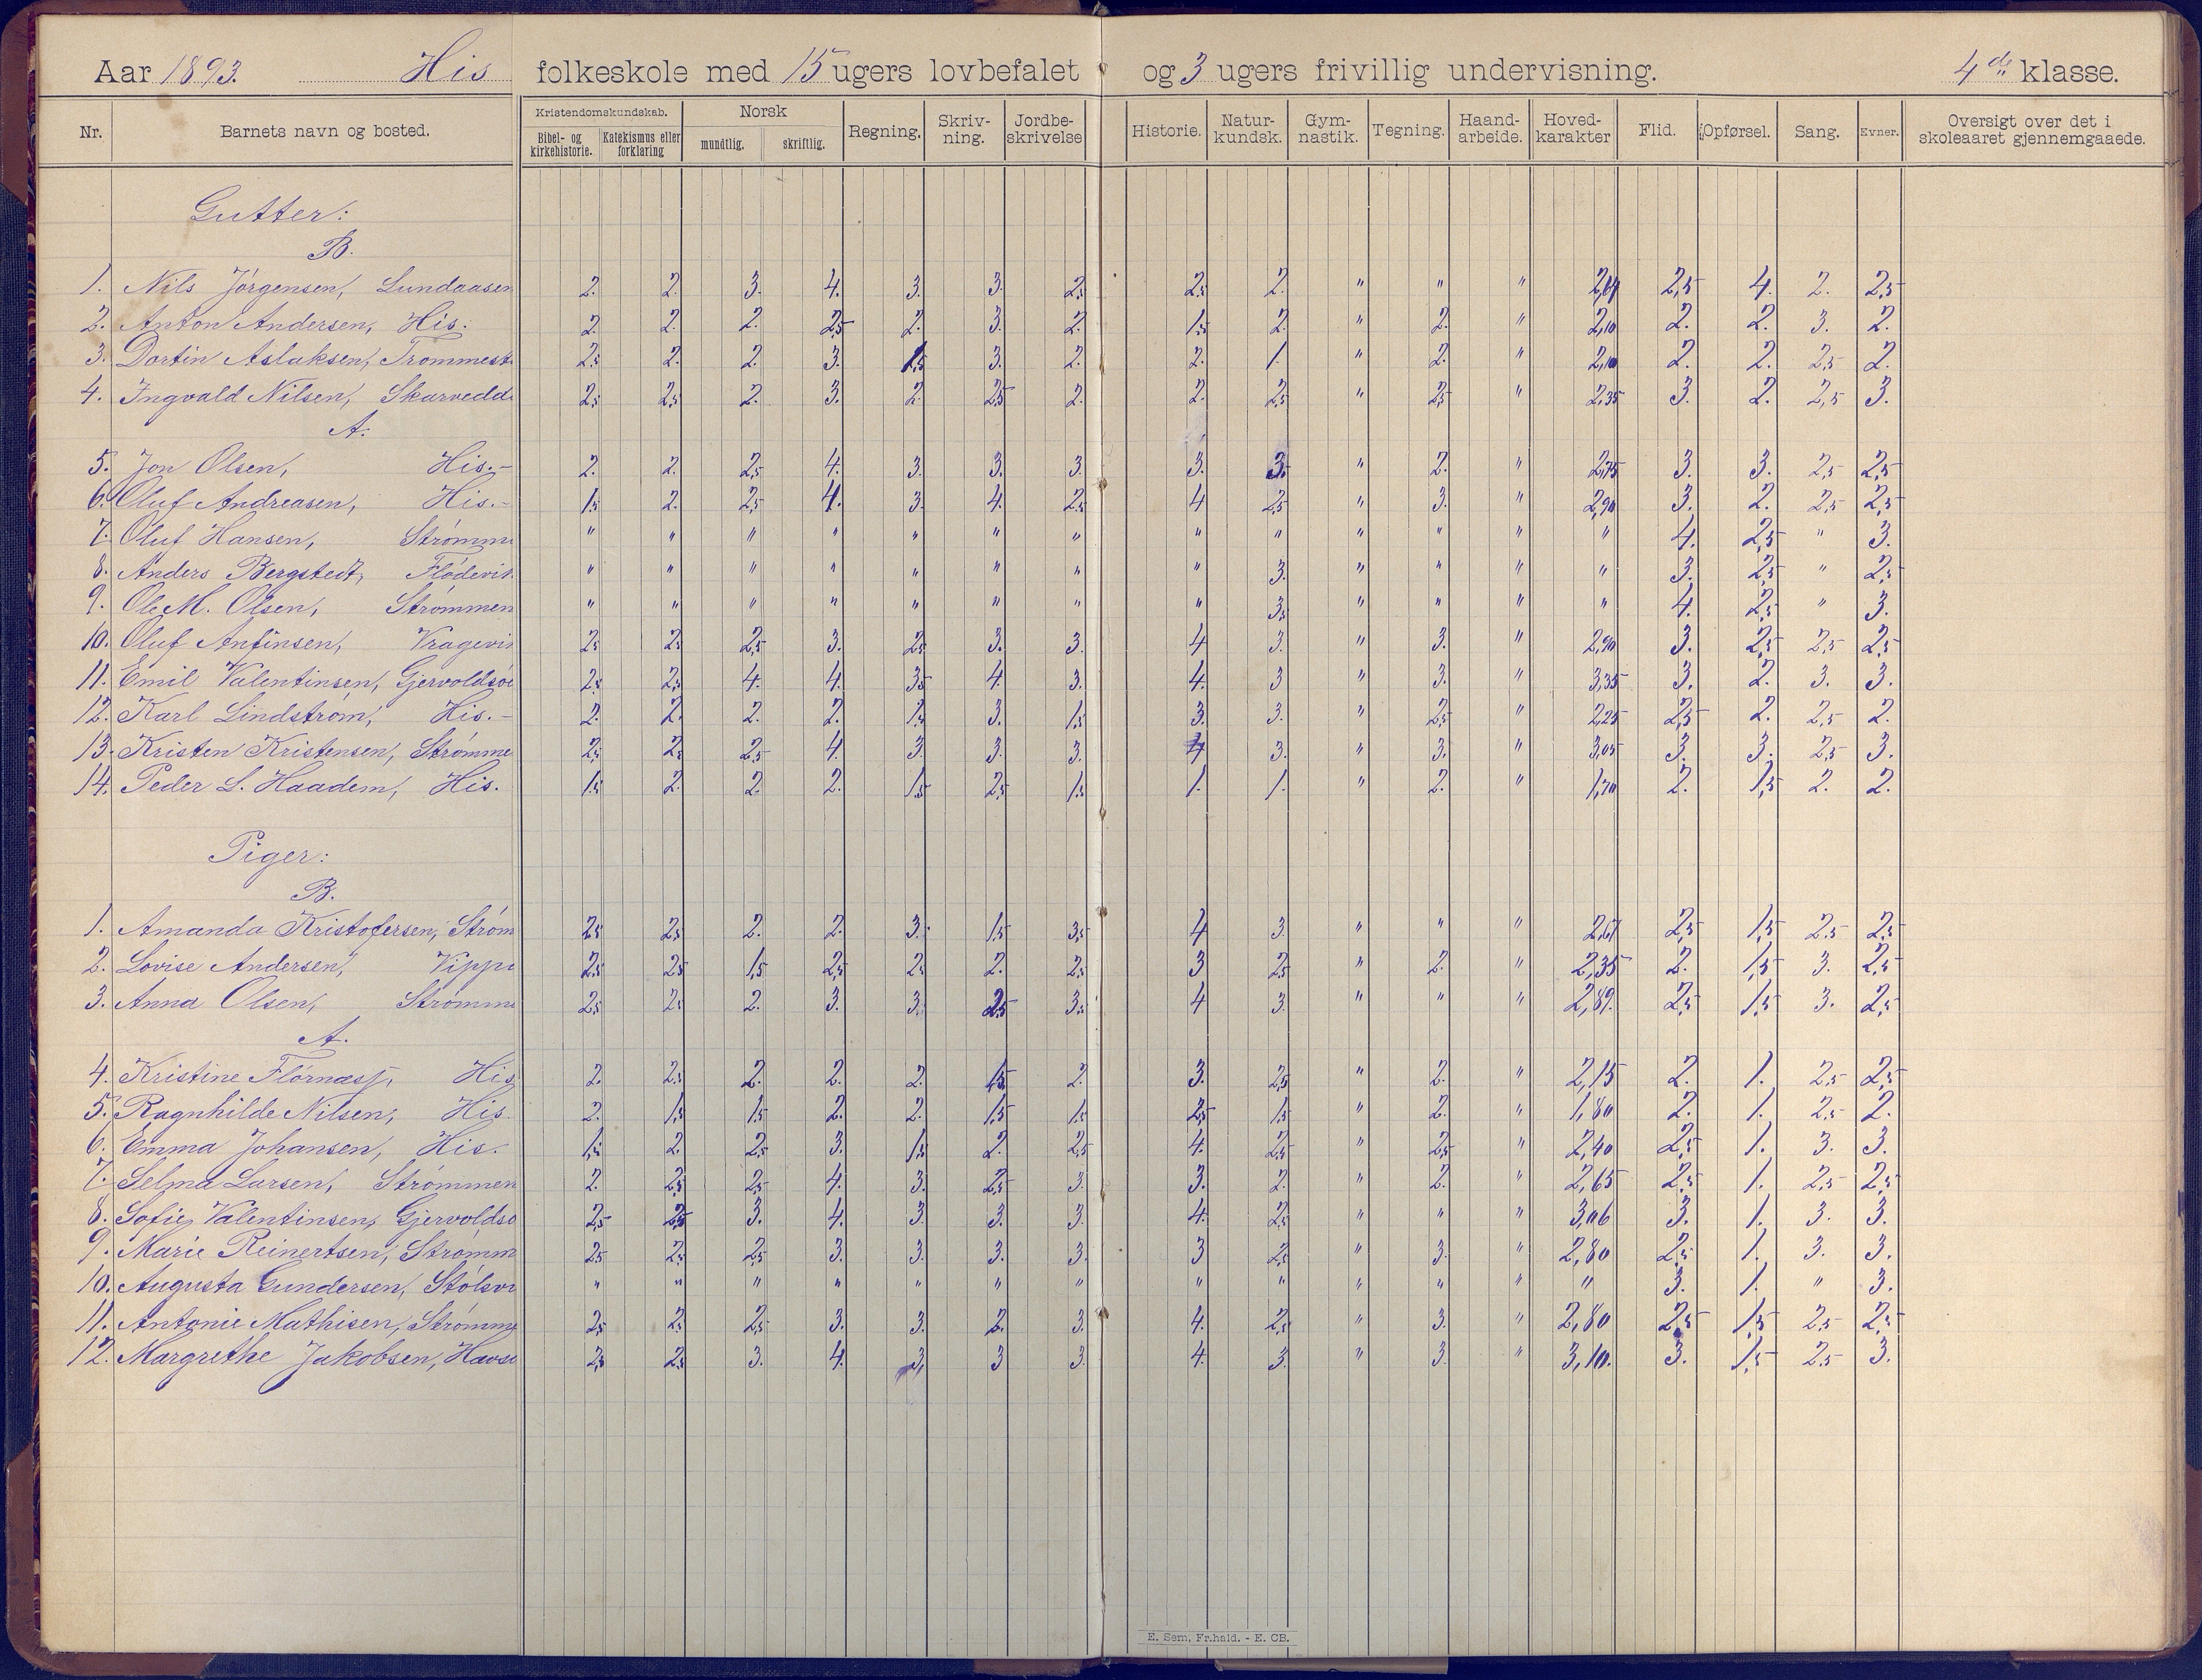 Aar 1893. His folkeskole med 15 ugers lovbefalet og 3 ugers frivillig undervisning. 4de klasse.
Nr. Barnets navn og bosted. Kristendomskundskab. Bibel- og kirkehistorie. Katekismus eller forklaring Norsk mundtlig. skriftlig. Regning. Skriv-ning. Jordbe-skrivelse Historie. Natur-kundsk. Gym-nastik. Tegning. Haand-arbeide. Hoved-karakter Flid. Opførsel. Sang. Evner. Oversigt over det i skoleaaret gjennemgaaede.
Gutter:
B.
1. Nils Jørgensen, Lundaasen 2. 2. 3. 4. 3. 3. 2,5 2,5 2. " " " 2,64 2,5 4. 2. 2,5
2. Anton Andersen, His. 2. 2. 2. 2,5 2. 3. 2. 1,5 2. " 2. " 2,10 2. 2. 3. 2.
3. Dortin Aslaksen, Trommest 2,5 2. 2. 3. 1,5 3. 2. 2. 1. " 2. " 2,10 2. 2. 2,5 2.
4. Ingvald Nilsen, Skarvedd 2,5 2,5 2. 3. 2. 2,5 2. 2. 2,5 " 2,5 " 2,35 3. 2. 2,5 3.
A.
5. Jon Olsen, His.- 2. 2. 2,5 4. 3. 3. 3. 3. 3. " 2. " 2,75 3. 3. 2,5 2,5
6. Oluf Andreasen, His.- 1,5 2. 2,5 4. 3. 4. 2,5 4 2,5 " 3. " 2,90 3. 2. 2,5 2,5
7. Oluf Hansen, Strømm " " " " " " " " " " " " " 4. 2,5 " 3.
8. Anders Bergstedt, Flødevik " " " " " " " " 3. " " " " 3. 2,5 " 2,5
9. Ole M. Olsen, Strømmen " " " " " " " " 3,5 " " " " 4. 2,5 " 3.
10. Oluf Anfinsen, Vragevi 2,5 2,5 2,5 3. 2,5 3. 3. 4 3. " 3. " 2,90 3. 2,5 2,5 2,5
11. Emil Valentinsen, Gjervoldsø 2,5 2,5 4. 4. 3,5 4. 3. 4. 3 " 3. " 3,35 3. 2. 3. 3.
12. Karl Lindstrøm, His.- 2. 2. 2. 2. 1,5 3. 1,5 3. 3. " 2,5 " 2,25 2,5 2. 2,5 2.
13. Kristen Kristensen, Strømme 2,5 2,5 2,5 4. 3. 3. 3. 4 3. " 3. " 3,05 3. 3. 2,5 3.
14. Peder L. Haadem, His. 1,5 2. 2. 2. 1,5 2,5 1,5 1. 1. " 2. " 1,70 2. 1,5 2. 2.
Piger:
B.
1. Amanda Kristofersen, Strøm 2,5 2,5 2. 2. 3. 1,5 3,5 4 3. " " " 2,67 2,5 1,5 2,5 2,5
2. Lovise Andersen, Vipp 2,5 2,5 1,5 2,5 2,5 2. 2,5 3 2,5 " 2. " 2,35 2. 1,5 3. 2,5
3. Anna Olsen, Strømm 2,5 2,5 2. 3. 3. 2,5 3,5 4 3. " " " 2,89. 2,5 1,5 3. 2,5
A.
4. Kristine Flørnæs, His 2. 2,5 2. 2. 2. 1,5 2. 3. 2,5 " 2. " 2,15 2. 1. 2,5 2,5
5. Ragnhilde Nilsen, His. 2. 1,5 1,5 2. 2. 1,5 1,5 2,5 1,5 " 2. " 1,80 2. 1. 2,5 2.
6. Emma Johansen, His. 1,5 2. 2,5 3. 1,5 2. 2,5 4. 2,5 " 2,5 " 2,40 2,5 1. 3. 3.
7. Selma Larsen, Strømmen 2. 2,5 2,5 4. 3. 2,5 3. 3. 2. " 2. " 2,65 2,5 1. 2,5 2,5
8. Sofie Valentinsen, Gjervoldsø 2,5 2,5 3. 4. 3. 3. 3. 4. 2,5 " " " 3,06 3. 1. 3. 3.
9. Marie Reinertsen, Strømm 2,5 2,5 2,5 3. 3. 3. 3. 3 2,5 " 3. " 2,80 2,5 1. 3. 3.
10. Augusta Gundersen, Stølsvi " " " " " " " " " " " " " 3. 1. " 3.
11. Antonie Mathisen, Strømme 2,5 2,5 2,5 3. 3. 2. 3. 4. 2,5 " 3. " 2,80 2,5 1,5 2,5 2,5
12. Margrethe Jakobsen, Havsø 2,5 2,5 3. 4. 3. 3 3. 4. 3. " 3. " 3,10. 3. 1,5 2,5 3.
E. Sem, Fr.hald. - E. CB.